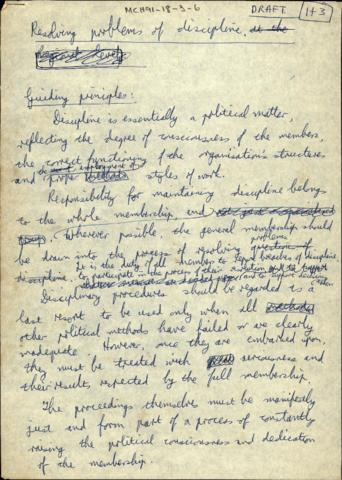 MCH91-18-3-6
DRAFT 1+3
Resolving problems of discipline, at the
Regional level
Guiding principles:
Discipline is essentially a political matter,
reflecting the degree of consciousness of the members,
the correct functioning of the organisation's structures
and the employment of proper methods styles of work.
Responsibility for maintaining discipline belongs
to the whole membership, and not just a specialised
group. Wherever possible, the general membership should
be drawn into the process of resolving problems of
discipline. It is the duty of all members to report breaches of discipline,
to participate in the process of their resolution and to support
Disciplinary procedures should be regarded as a
last resort to be used only when all methods
other political methods have failed or are clearly
inadequate. However, once they are embarked upon,
they must be treated with seriousness and
their results, respected by the full membership.
The proceedings themselves must be manifestly
just and form part of a process of constantly
raising the political consciousness and dedication
of the membership.